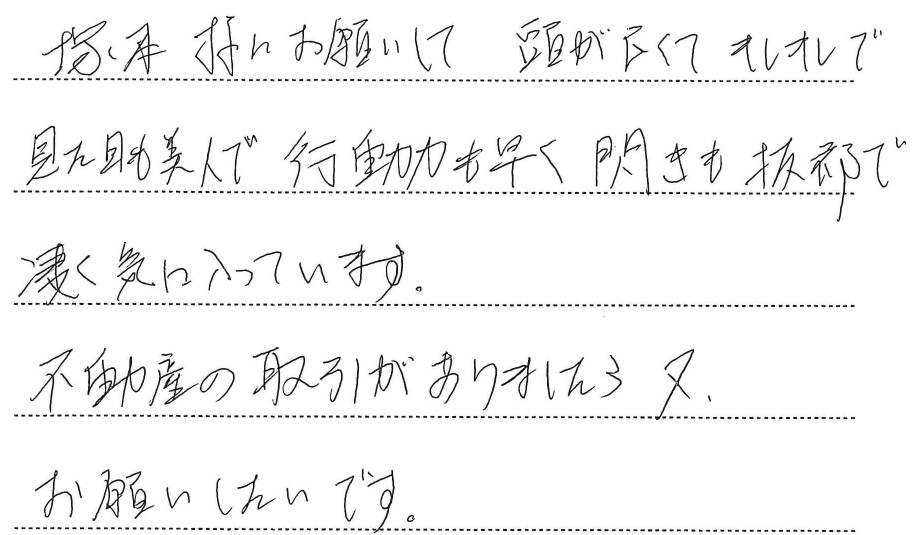 塚本 様にお願いして 頭が良くてオシオシで
見た目も美人で 行動力も早く 閃きも 抜群で
凄く気に入っています。
不動産の取引がありましたら 又、
お願いしたいです。